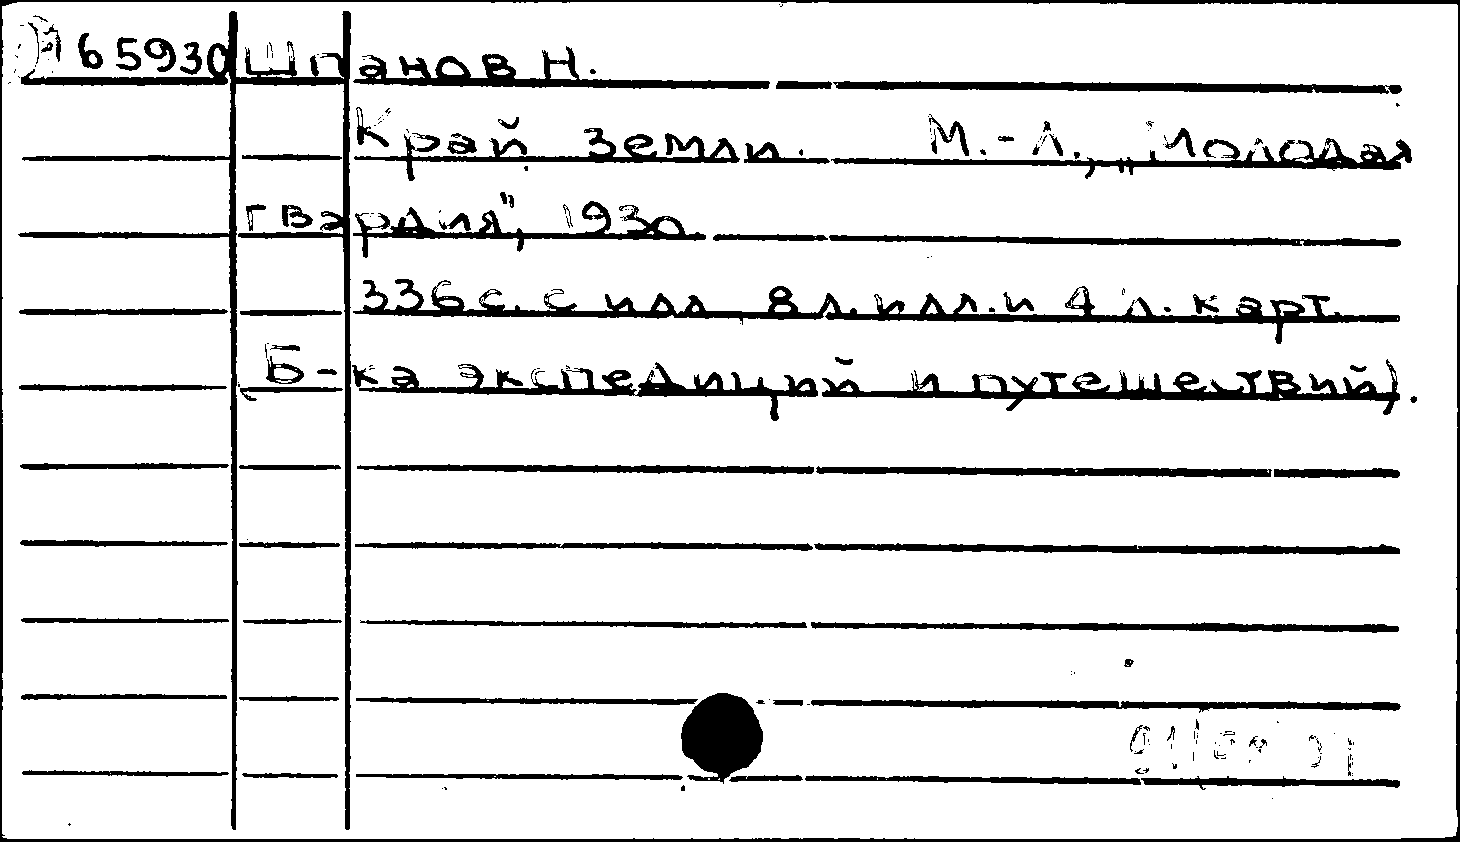 65930 Шпанов Н.
Край земли. М.-Л., „Молодая
гвардия", 1930
336 с. с илл 8 л. илл. и 4 л. карт.
(Б-ка экспедиций и путешествий).